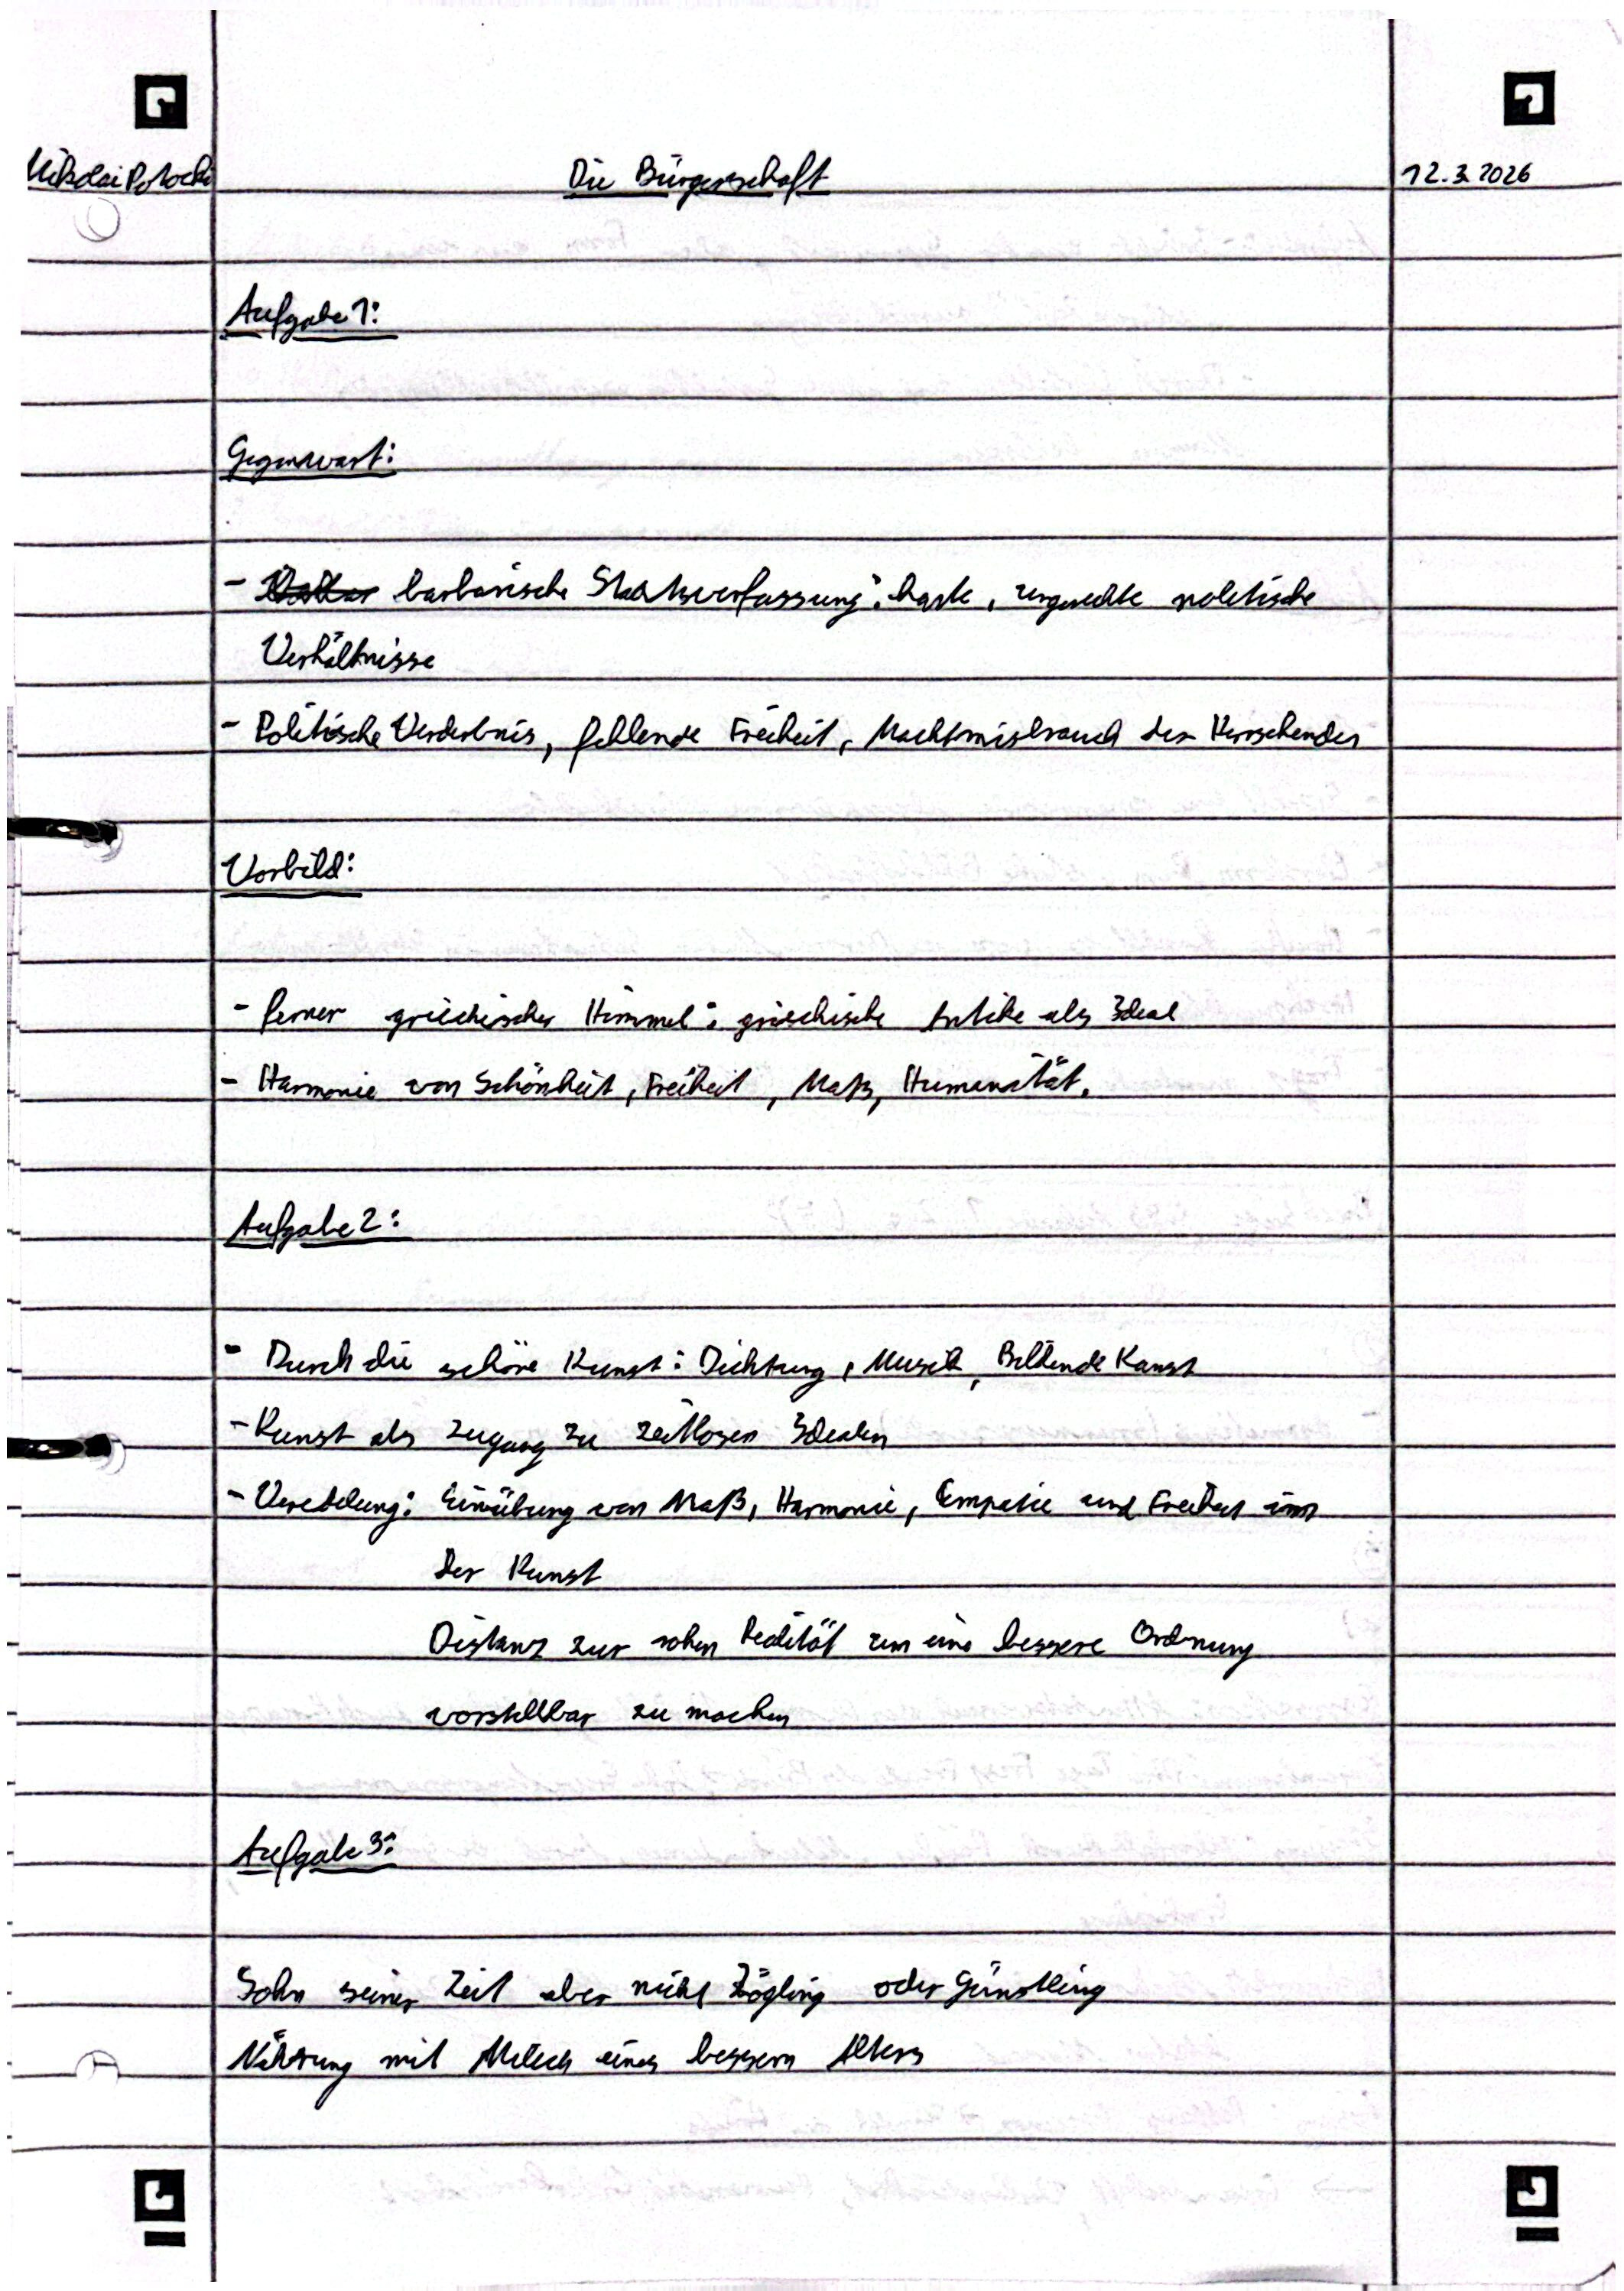 Nikolai Potocki
Die Bürgerschaft
12.3.2026
Aufgabe 1:
Gegenwart:
- barbarische Staatsverfassung: harte, ungerechte politische
Verhältnisse
- Politische Verderbnis, fehlende Freiheit, Machtmisbrauch der Herrschenden
Vorbild:
- ferner griechischer Himmel: griechische Antike als Ideal
- Harmonie von Schönheit, Freiheit, Maß, Humanität.
Aufgabe 2:
- Durch die schöne Kunst: Dichtung, Musik, Bildende Kunst
- Kunst als Zugang zu zeitlosen Idealen
- Veredelung: Einübung von Maß, Harmonie, Empatie und Freiheit
der Kunst
Distanz zur rohen Realität um eine bessere Ordnung
vorstellbar zu machen
Aufgabe 3:
Sohn seiner Zeit aber nicht Zögling oder Günstling
Nährung mit Milch eines bessern Alters